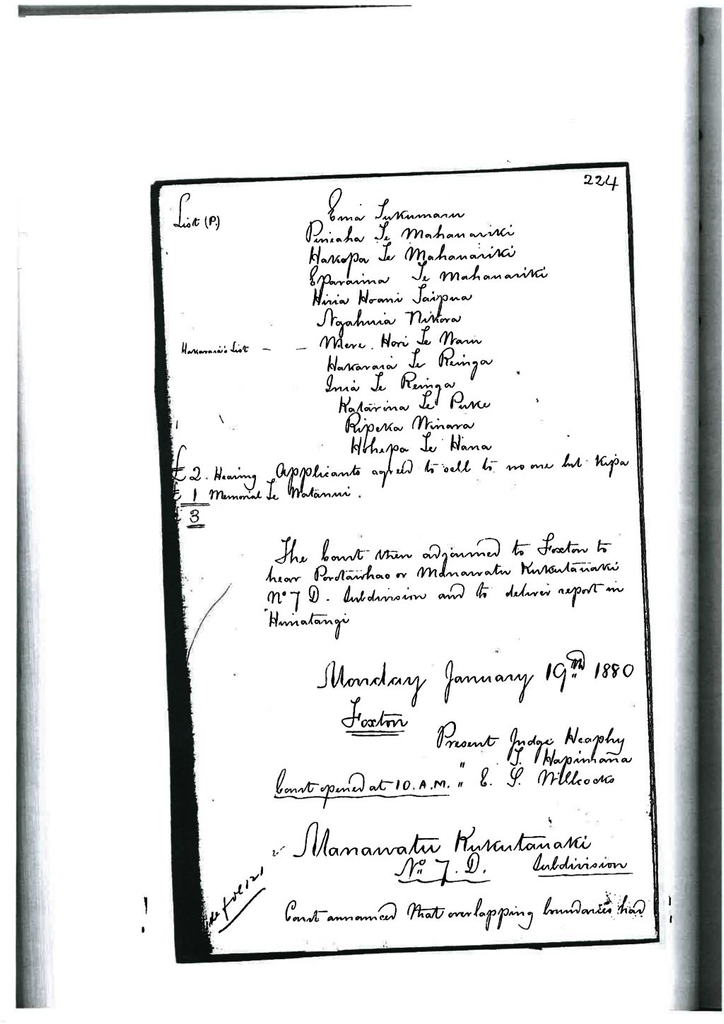 224
List (P.) Ema Tukumaru
Pineaha Te Mahanariki
Hakopa Te Mahanariki
Eparaima Te Mahanariki
Hiria Hoani Taipua
Ngahuia Nikora
Hakaraia's List - - Wiere Hori Te Waru
Hakaraia Te Reinga
Inia Te Reinga
Katarina Te Puke
Ripeka Winara
Hohepa Te Hana
£2. Hearing Applicants agreed to sell to no one but Kipa
£1 Memorial Te Watanui.
3
The Court then adjourned to Foxton to
hear Porotawhao or Manawatu Kukutauaki
No 7 D. Subdivision and to deliver report in
Himatangi
Monday January 19th 1880
Foxton
Present Judge Heaphy
T. Hapimana
Court opened at 10. A.M. " E. S. Willcocks
Manawatu Kukutauaki
No 7. D. Subdivision
fol 121
Court announced that overlapping boundaries had